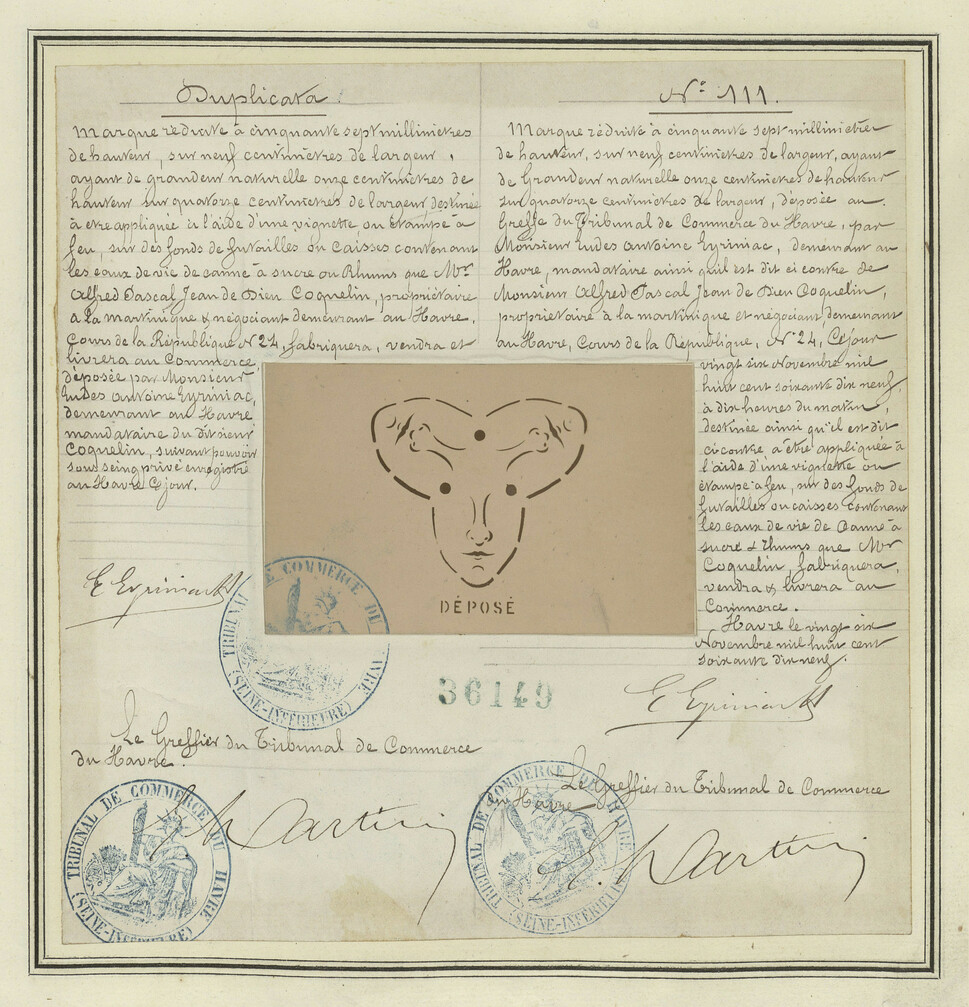 Duplicata.
Marque réduite à cinquante sept millimètres
de hauteur, sur neuf centimètres de largeur,
ayant de grandeur naturelle onze centimètres de
hauteur sur quatorze centimètres de largeur, destinée
à être appliquée à l'aide d'une vignette ou étampe à
feu, sur des fonds de futailles ou caisses contenant
les eaux de vie de canne à sucre ou Rhums que Mr
Alfred Pascal Jean de Dieu Coquelin, propriétaire
à la martinique & négociant demeurant au Havre,
Cours de la République N° 24, fabriquera, vendra et
livrera au Commerce,
déposée par Monsieur
Eudes Antoine Eyriniac,
demeurant au Havre
mandataire du dit sieur
Coquelin, suivant pouvoir
sous seing privé enregistré
au Havre ce jour.
N° 111.
Marque réduite à cinquante sept millimètres
de hauteur, sur neuf centimètres de largeur, ayant
de Grandeur naturelle onze centimètres de hauteur
sur quatorze centimètres de largeur, déposée au
Greffe du Tribunal de Commerce du Havre, par
Monsieur Eudes Antoine Eyriniac, demeurant au
Havre, mandataire ainsi qu'il est dit ci contre de
Monsieur Alfred Pascal Jean de Dieu Coquelin,
propriétaire à la martinique et négociant, demeurant
au Havre, Cours de la République, N° 24, Ce jour
vingt six Novembre mil
huit cent soixante dix neuf,
à dix heures du matin,
destinée ainsi qu'il est dit
ci contre à être appliquée à
l'aide d'une vignette ou
étampe à feu, sur des fonds de
futailles ou caisses contenant
les eaux de vie de Canne à
sucre & rhums que Mr
Coquelin, fabriquera,
vendra & livrera au
Commerce.
Havre le vingt six
Novembre mil huit cent
soixante dix neuf.
DÉPOSÉ
TRIBUNAL DE COMMERCE DU HAVRE
(SEINE-INFÉRIEURE)
36149
Le Greffier du Tribunal de Commerce
du Havre.
TRIBUNAL DE COMMERCE DU HAVRE
(SEINE-INFÉRIEURE)
Le Greffier du Tribunal de Commerce
du Havre
TRIBUNAL DE COMMERCE DU HAVRE
(SEINE-INFÉRIEURE)